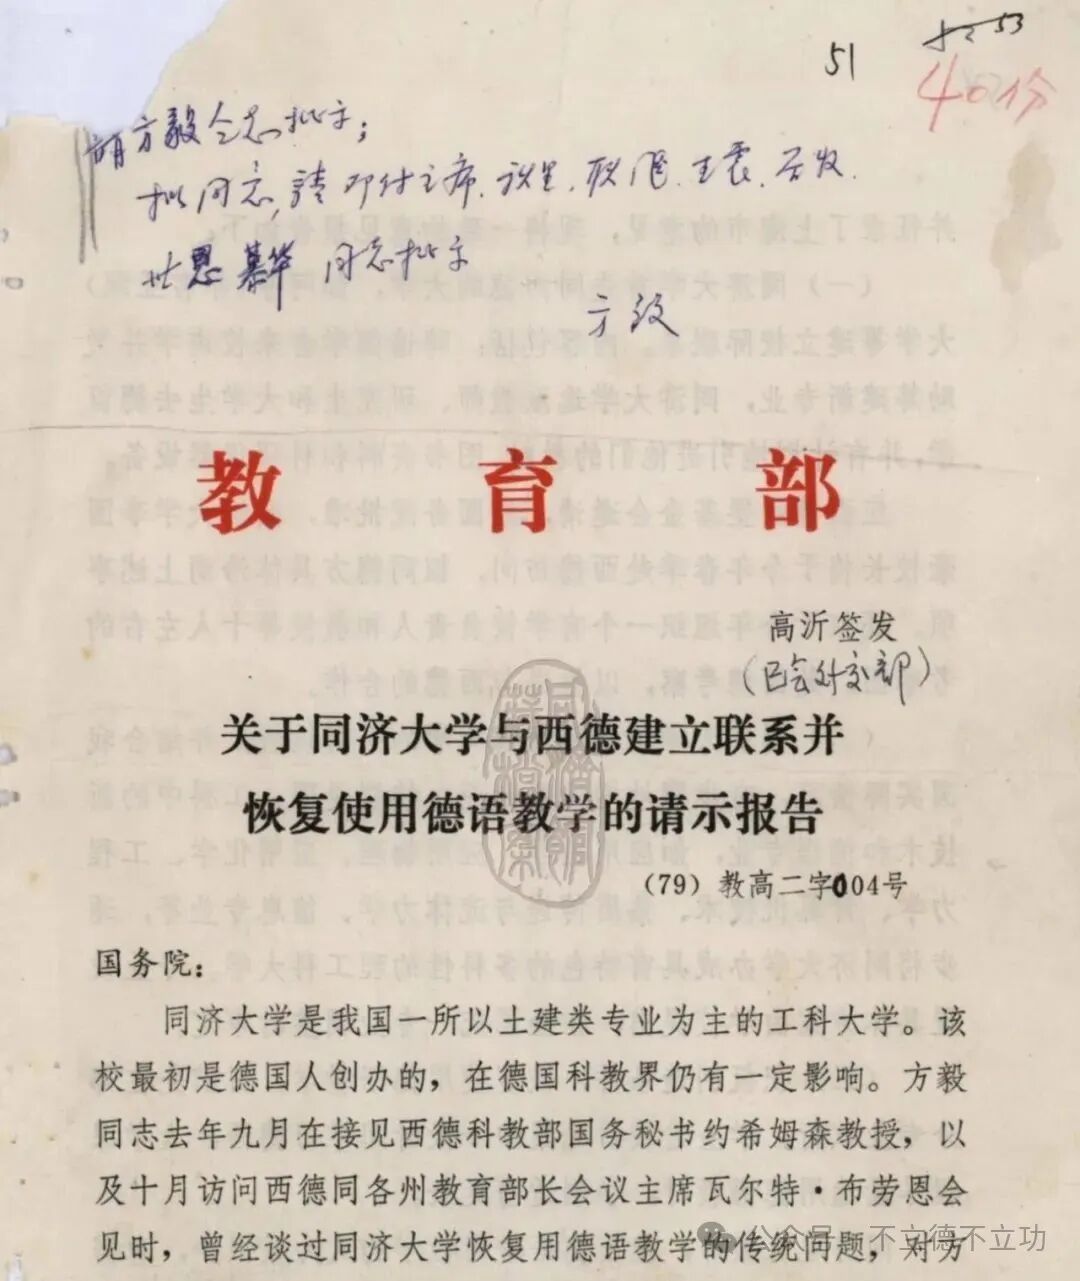 51
53
40份
请方毅同志批示；
拟同意，请邓付主席、登奎、耿飚、王震、谷牧、
世恩 慕华 同志批示
方毅
教育部
高沂签发
（已会外交部）
关于同济大学与西德建立联系并
恢复使用德语教学的请示报告
（79）教高二字004号
国务院：
同济大学是我国一所以土建类专业为主的工科大学。该
校最初是德国人创办的，在德国科教界仍有一定影响。方毅
同志去年九月在接见西德科教部国务秘书约希姆森教授，以
及十月访问西德同各州教育部长会议主席瓦尔特·布劳恩会
见时，曾经谈过同济大学恢复用德语教学的传统问题，对方
公众号·不立德不立功